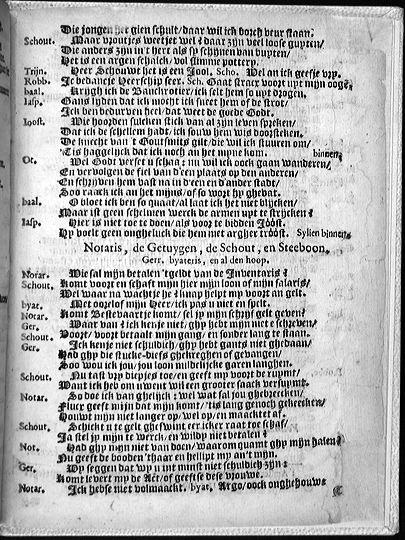 Die jongen hier gien schult/ daar wil ick borch veur staan.
Schout. Maar vrouwtjes weetjet wel? daar zijn veel loose guyten/
Die anders zijn in 't hert als sp schijnen van buyten/
Het is een argen schalck/ vol slimme potterp.
Trijn. Heer Schouwt het is een Jool. Scho. Wel an ick geefje vry.
Robb. Ic bedancje Heerschip seer. Sch. Gaat stracx voort uyt mijn oogē.
baal. Krijgh ick de Banckrotier/ ick selt hem so opdrogen.
Iasp. Gans lyden dat ick mocht ick sneet hem of de strot/
Ick ben bedurven heel/ dat weet de goede Godt.
Ioost. Wie hoorden sulcken stick van al zijn leven spreken/
Dat ick de schellem hadt/ ick souw hem wis doorsteken.
De knecht van 't Goutsmits gilt/ die wil ick stuuren om/
'Tis haggelijck dat ick noch an het mijne kom. binnen.
Ot. Wel Godt verset u schaa: nu wil ick oock gaan wanderen/
En vervolgen de fiel van d'een plaats op den anderen/
En schrijven hem vast na in d'een en d'ander stadt/
Soo raack ick an het mijns/ of so wort hy ghevat.
baal. O bloet ick ben so quaat/ al laat ick het niet blijcken/
Maar ist geen schelmen werck de armen uyt te strijcken?
Iasp. Hier is niet toe te doen/ als voor te bidden Jóóst.
Hy voelt geen onghelnck die hem met argher tróóst. Sylien binnen.
Notaris, de Getuygen, de Schout, en Steeboon.
Gerr. byateris, en al den hoop.
Notar. Wie sal mijn betalen 'tgeldt van de Inventaris?
Schout. Komt voort en schaft mijn hier mijn loon of mijn salaris/
Wel waar na wachtje he? knap helpt my voort an gelt.
byat. Met oorelof mijn Heer/ ick pas u niet en spelt.
Notar. Komt Bestevaartje komt/ sel jy mijn schrijf gelt geven?
Ger. Waar van? ick kenje niet/ ghy hebt mijn niet e schreven/
Schout. Voort/ voort betaalt mijn gang/ en sonder lang te staan.
Ger. Ick kenje niet schuldich/ ghy hebt gants niet ghedaan/
Had ghy die stucke-diefs ghekreghen of gevangen/
Soo wou ick jou/ jou loon mildelijcke garen langhen.
Schout. Nu tast vry diepjes toe/ en geeft my voort de ruymt/
Want ick heb om u went wil een grooter saack versuymt.
Notar. So doe ick van ghelijck: wel wat sal jou ghebreecken/
Flucx geeft mijn dat mijn komt/ 'tis lang genoch gekeecken/
Houwt mijn niet langer op/ wel op/ en maacktet af.
Schout. Schickt u te gelt gheswint eer icker raat toe schaf/
Ja stel jy mijn te werck/ en wildy niet betalen?
Not. Had ghy mijn niet van doen/ waarom quamt ghy mijn halen?
Nu geeft de booden 'thaar en hellipt my an't mijn.
Ger. Wy seggen dat wy u int minst niet schuldich zijn:
Notar. Komt levert my de Aer/ of geeft se dese vrouwe.
Notar. Ick hebse niet volmaackt. byat. Argo/ oock onghehouwe